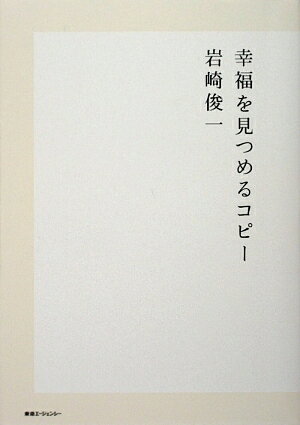 幸福を見つめるコピー
岩崎俊一
東急エージェンシー